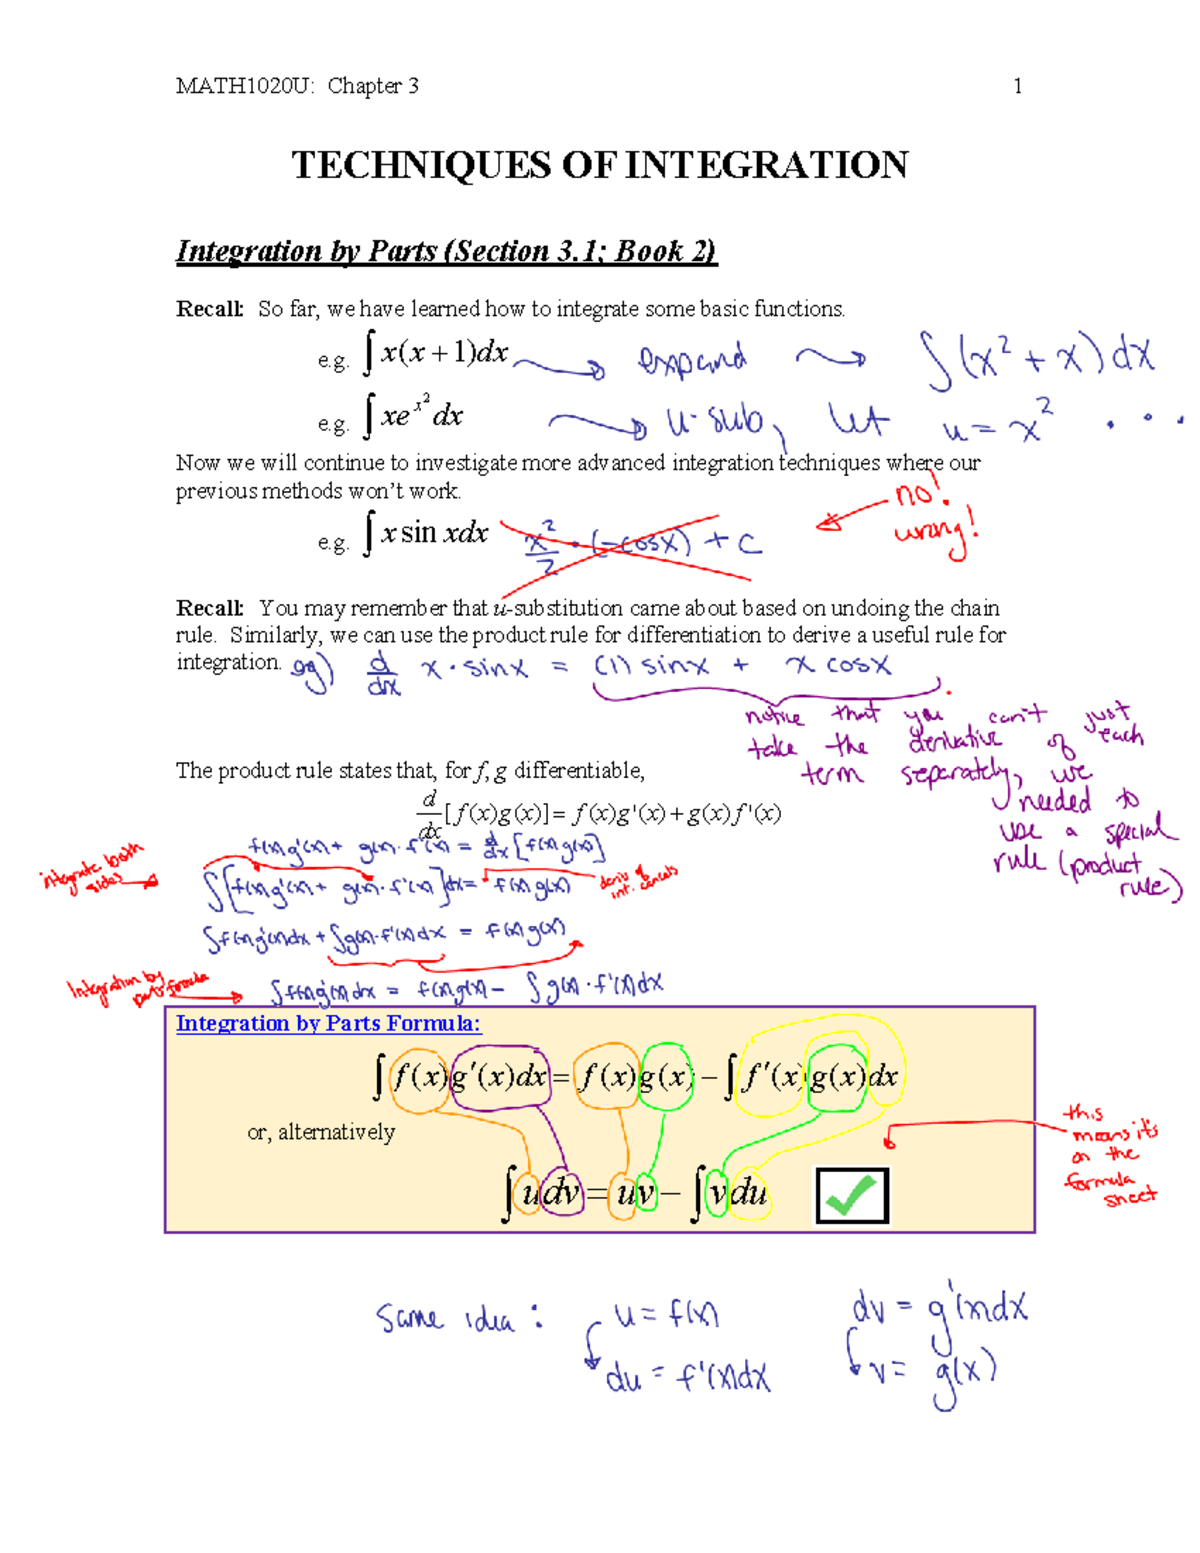 MATH1020U: Chapter 3 1
TECHNIQUES OF INTEGRATION
Integration by Parts (Section 3.1; Book 2)
Recall: So far, we have learned how to integrate some basic functions.
e.g. ∫x(x + 1)dx → expand → ∫(x² + x)dx
e.g. ∫xe^{x²}dx → u-sub, let u = x² . . .
Now we will continue to investigate more advanced integration techniques where our
previous methods won't work.
no!
wrong!
e.g. ∫x sin xdx x²/2 · (-cosx) + C
Recall: You may remember that u-substitution came about based on undoing the chain
rule. Similarly, we can use the product rule for differentiation to derive a useful rule for
integration. eg) d/dx x · sinx = (1) sinx + x cosx
notice that you can't just
take the derivative of each
term separately, we
needed to
use a special
rule (product
rule)
The product rule states that, for f, g differentiable,
d/dx [f(x)g(x)] = f(x)g'(x) + g(x)f'(x)
f(x)g'(x) + g(x)·f'(x) = d/dx [f(x)g(x)]
integrate both
sides → ∫[f(x)g'(x) + g(x)·f'(x)]dx = f(x)g(x) deriv of
int. cancels
∫f(x)g'(x)dx + ∫g(x)·f'(x)dx = f(x)g(x)
Integration by
parts formula → ∫f(x)g'(x)dx = f(x)g(x) − ∫g(x)·f'(x)dx
Integration by Parts Formula:
∫f(x)g'(x)dx = f(x)g(x) − ∫f'(x)g(x)dx
or, alternatively
∫udv = uv − ∫vdu
this
means it's
on the
formula
sheet
same idea: u = f(x) dv = g'(x)dx
du = f'(x)dx v = g(x)